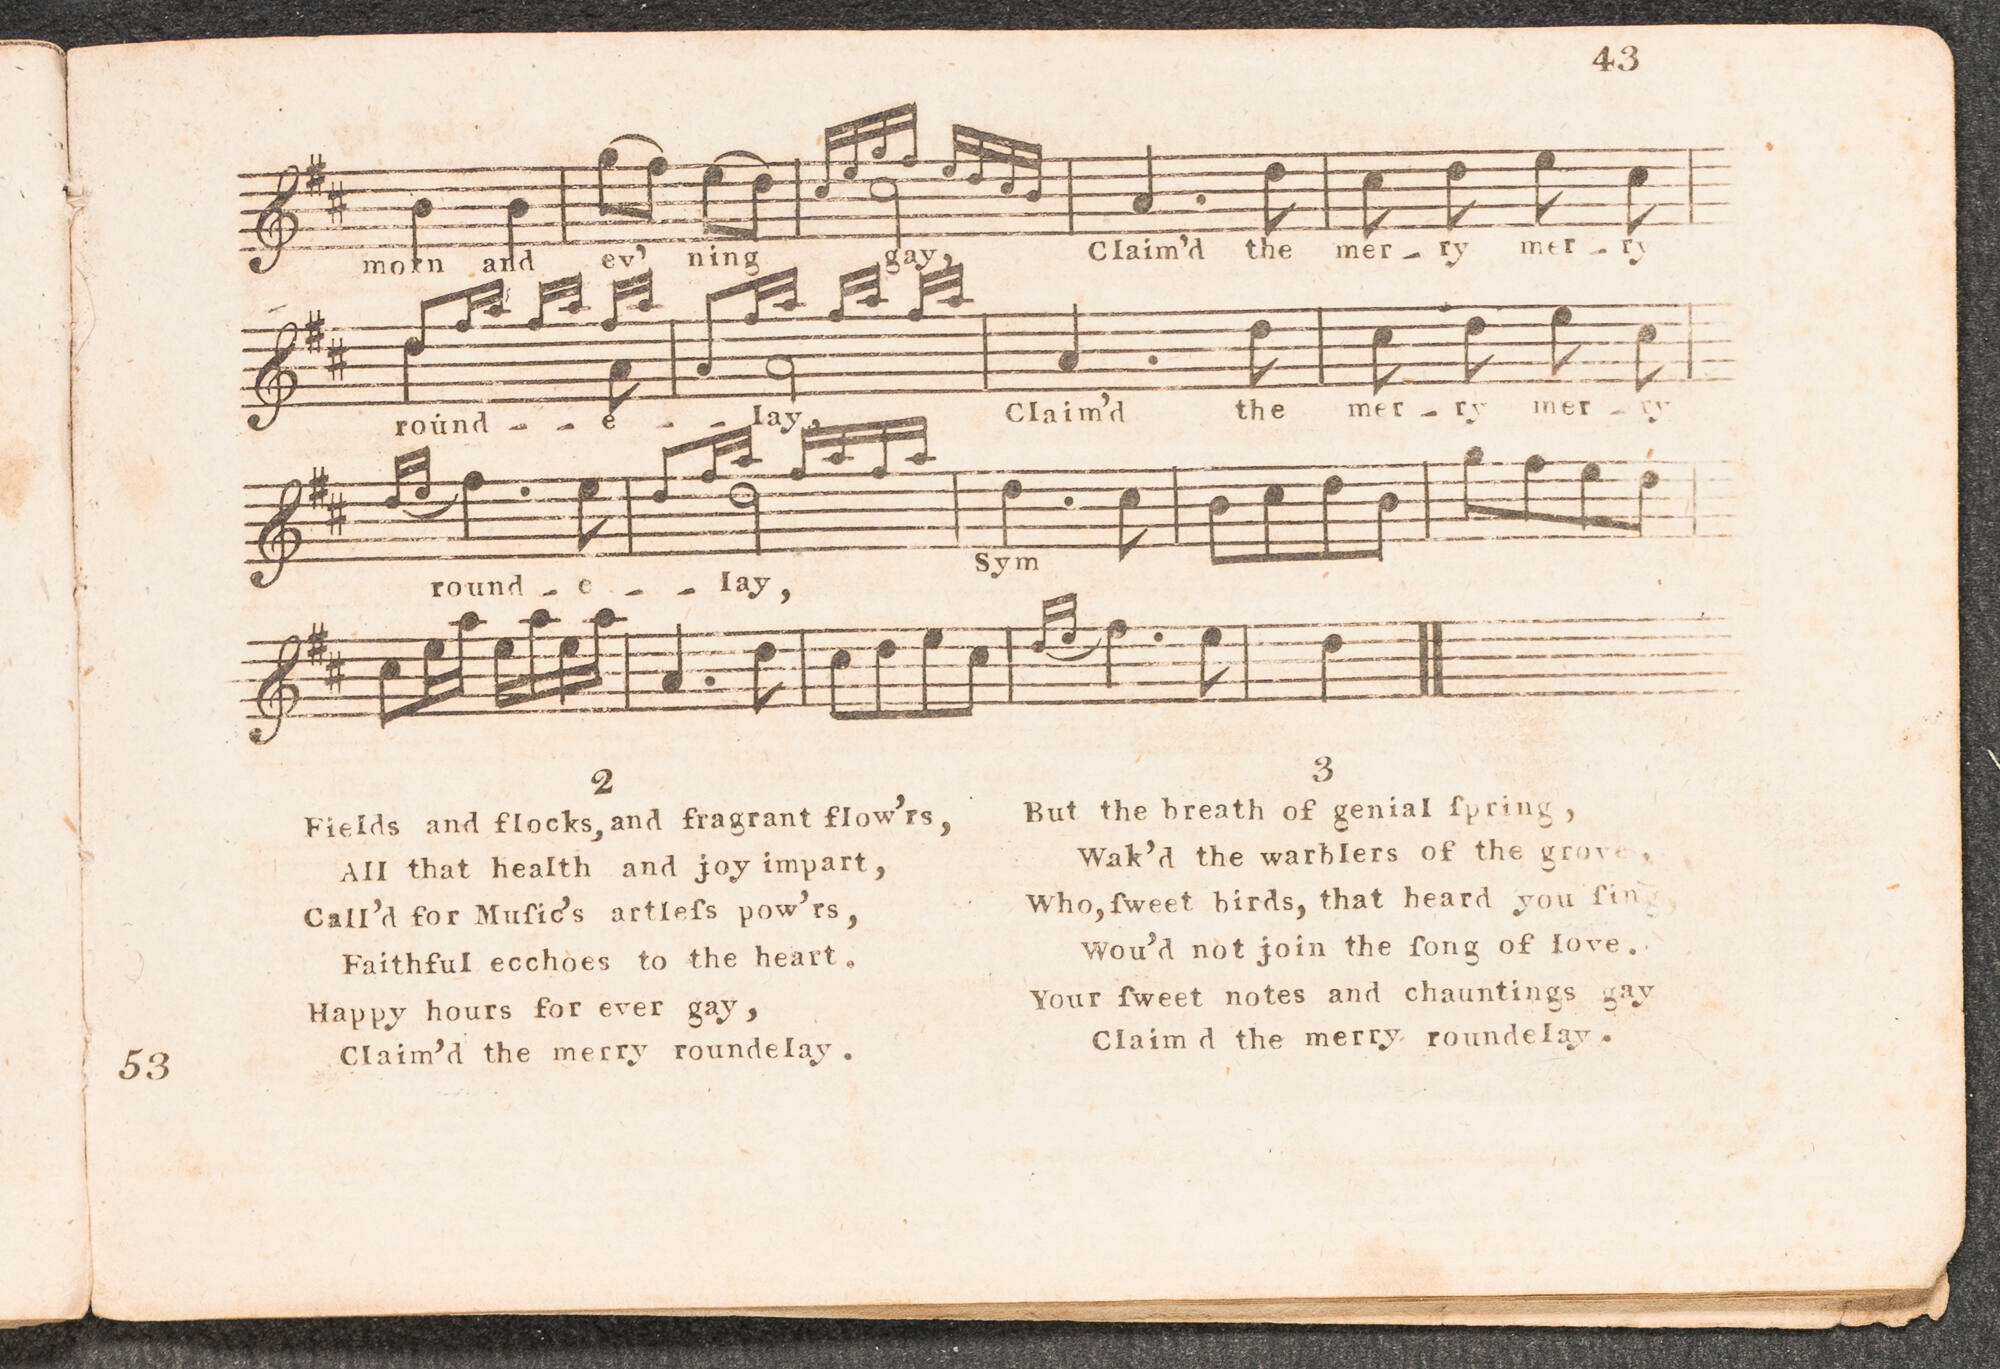 43
morn and ev' ning gay, Claim'd the mer - ry mer - ry
round - - e - - lay, Claim'd the mer - ry mer - ry
Sym
round - e - - lay,
2
Fields and flocks, and fragrant flow'rs,
All that health and joy impart,
Call'd for Muſic's artleſs pow'rs,
Faithful ecchoes to the heart.
Happy hours for ever gay,
Claim'd the merry roundelay.
3
But the breath of genial ſpring,
Wak'd the warblers of the grove,
Who, ſweet birds, that heard you ſing,
Wou'd not join the ſong of love.
Your ſweet notes and chauntings gay
Claim d the merry roundelay.
53